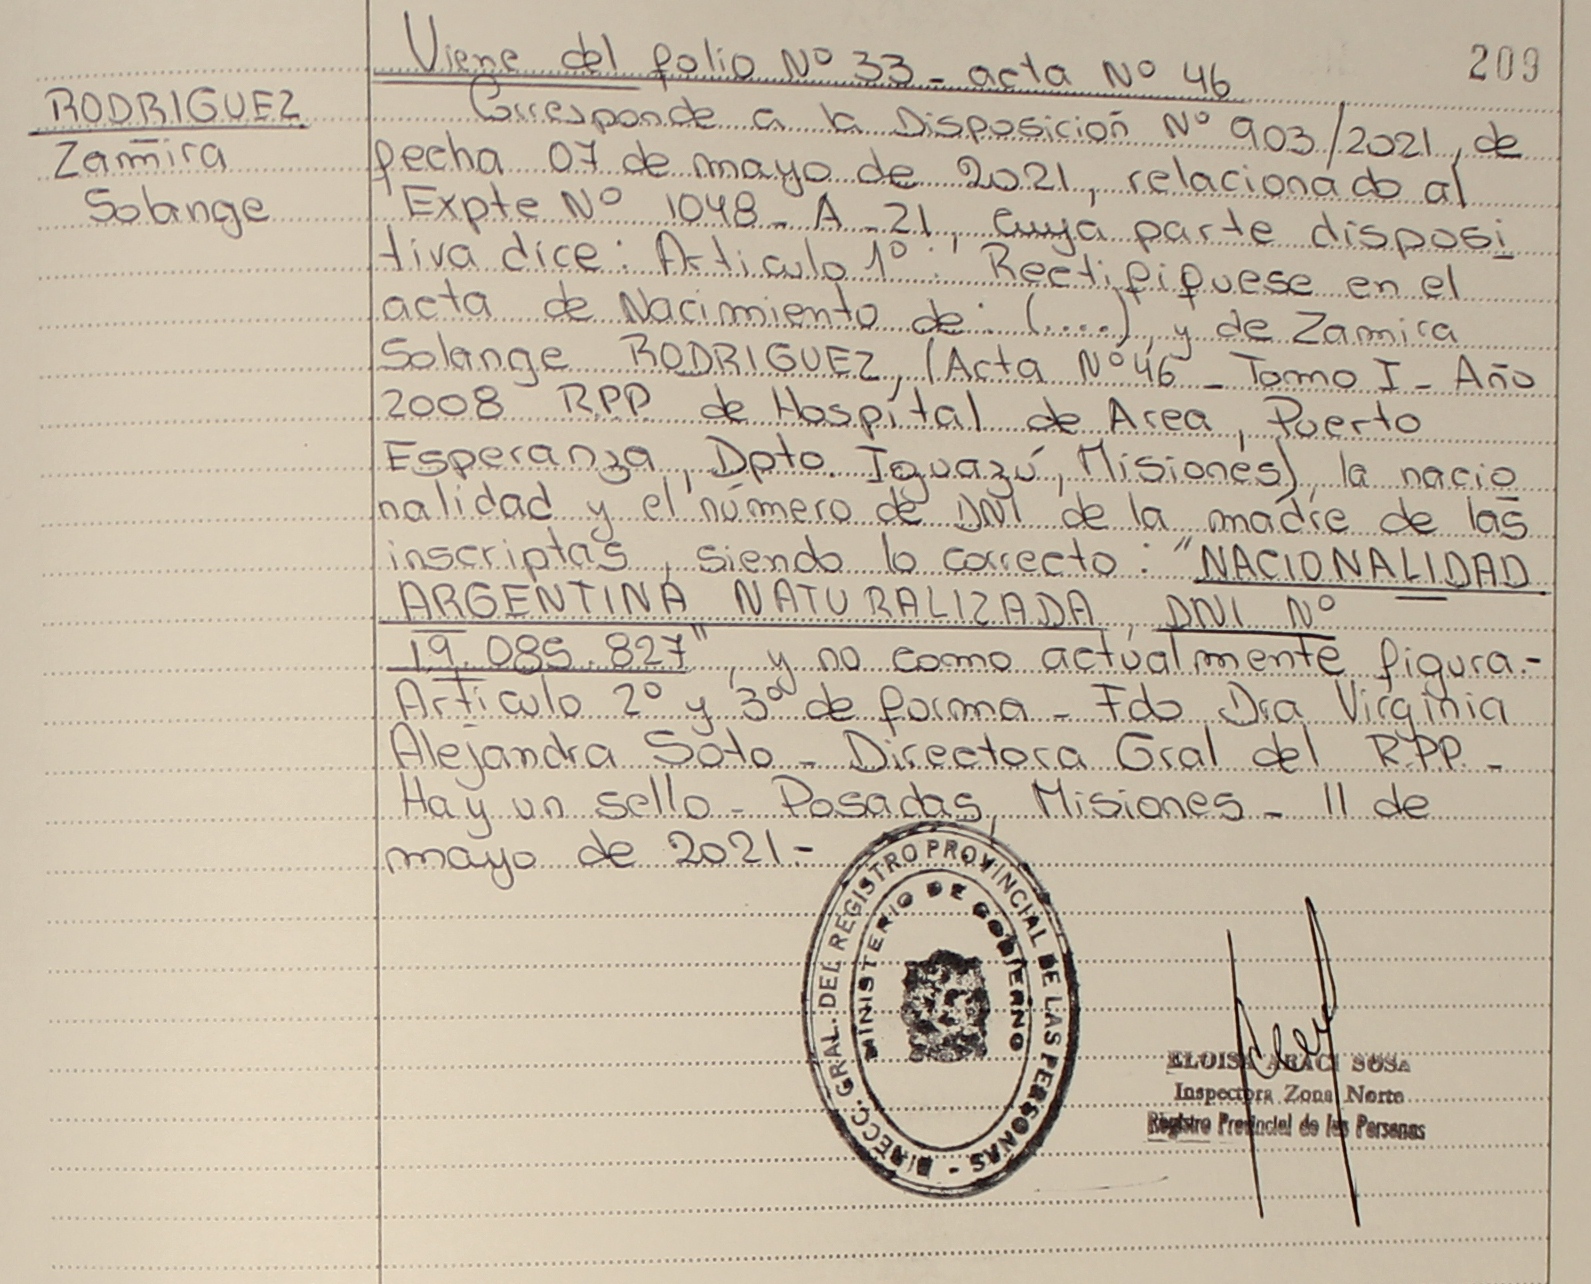 Viene del folio Nº 33 - acta Nº 46
209
RODRIGUEZ
Zamira
Solange
Corresponde a la Disposición Nº 903/2021, de
fecha 07 de mayo de 2021, relacionado al
Expte Nº 1048 - A - 21, cuya parte disposi
tiva dice: Articulo 1º: Rectifiquese en el
acta de Nacimiento de: (....), y de Zamira
Solange RODRIGUEZ, (Acta Nº 46 - Tomo I - Año
2008 R.P.P. de Hospital de Area, Puerto
Esperanza, Dpto. Iguazú, Misiones), la nacio
nalidad y el número de DNI de la madre de las
inscriptas, siendo lo correcto: "NACIONALIDAD
ARGENTINA NATURALIZADA, DNI Nº
19.085.827", y no como actualmente figura.-
Artículo 2º y 3º de forma - Fdo Dra Virginia
Alejandra Soto - Directora Gral del R.P.P. -
Hay un sello - Posadas, Misiones - 11 de
mayo de 2021.-
DIRECC. GRAL. DEL REGISTRO PROVINCIAL DE LAS PERSONAS -
MINISTERIO DE GOBIERNO
ELOISA ARACI SOSA
Inspectora Zona Norte
Registro Provincial de las Personas